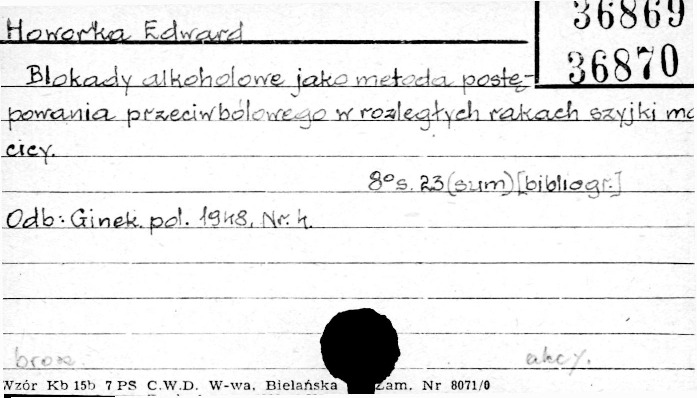 Howorka Edward
36869
36870
Blokady alkoholowe jako metoda postę-
powania przeciwbólowego w rozległych rakach szyjki ma
cicy.
8° s. 23 (sum) [bibliogr.]
Odb: Ginek. pol. 1948, Nr. 4.
brosz. akcy.
Wzór Kb 15b 7 PS C.W.D. W-wa, Bielańska Zam. Nr 8071/0